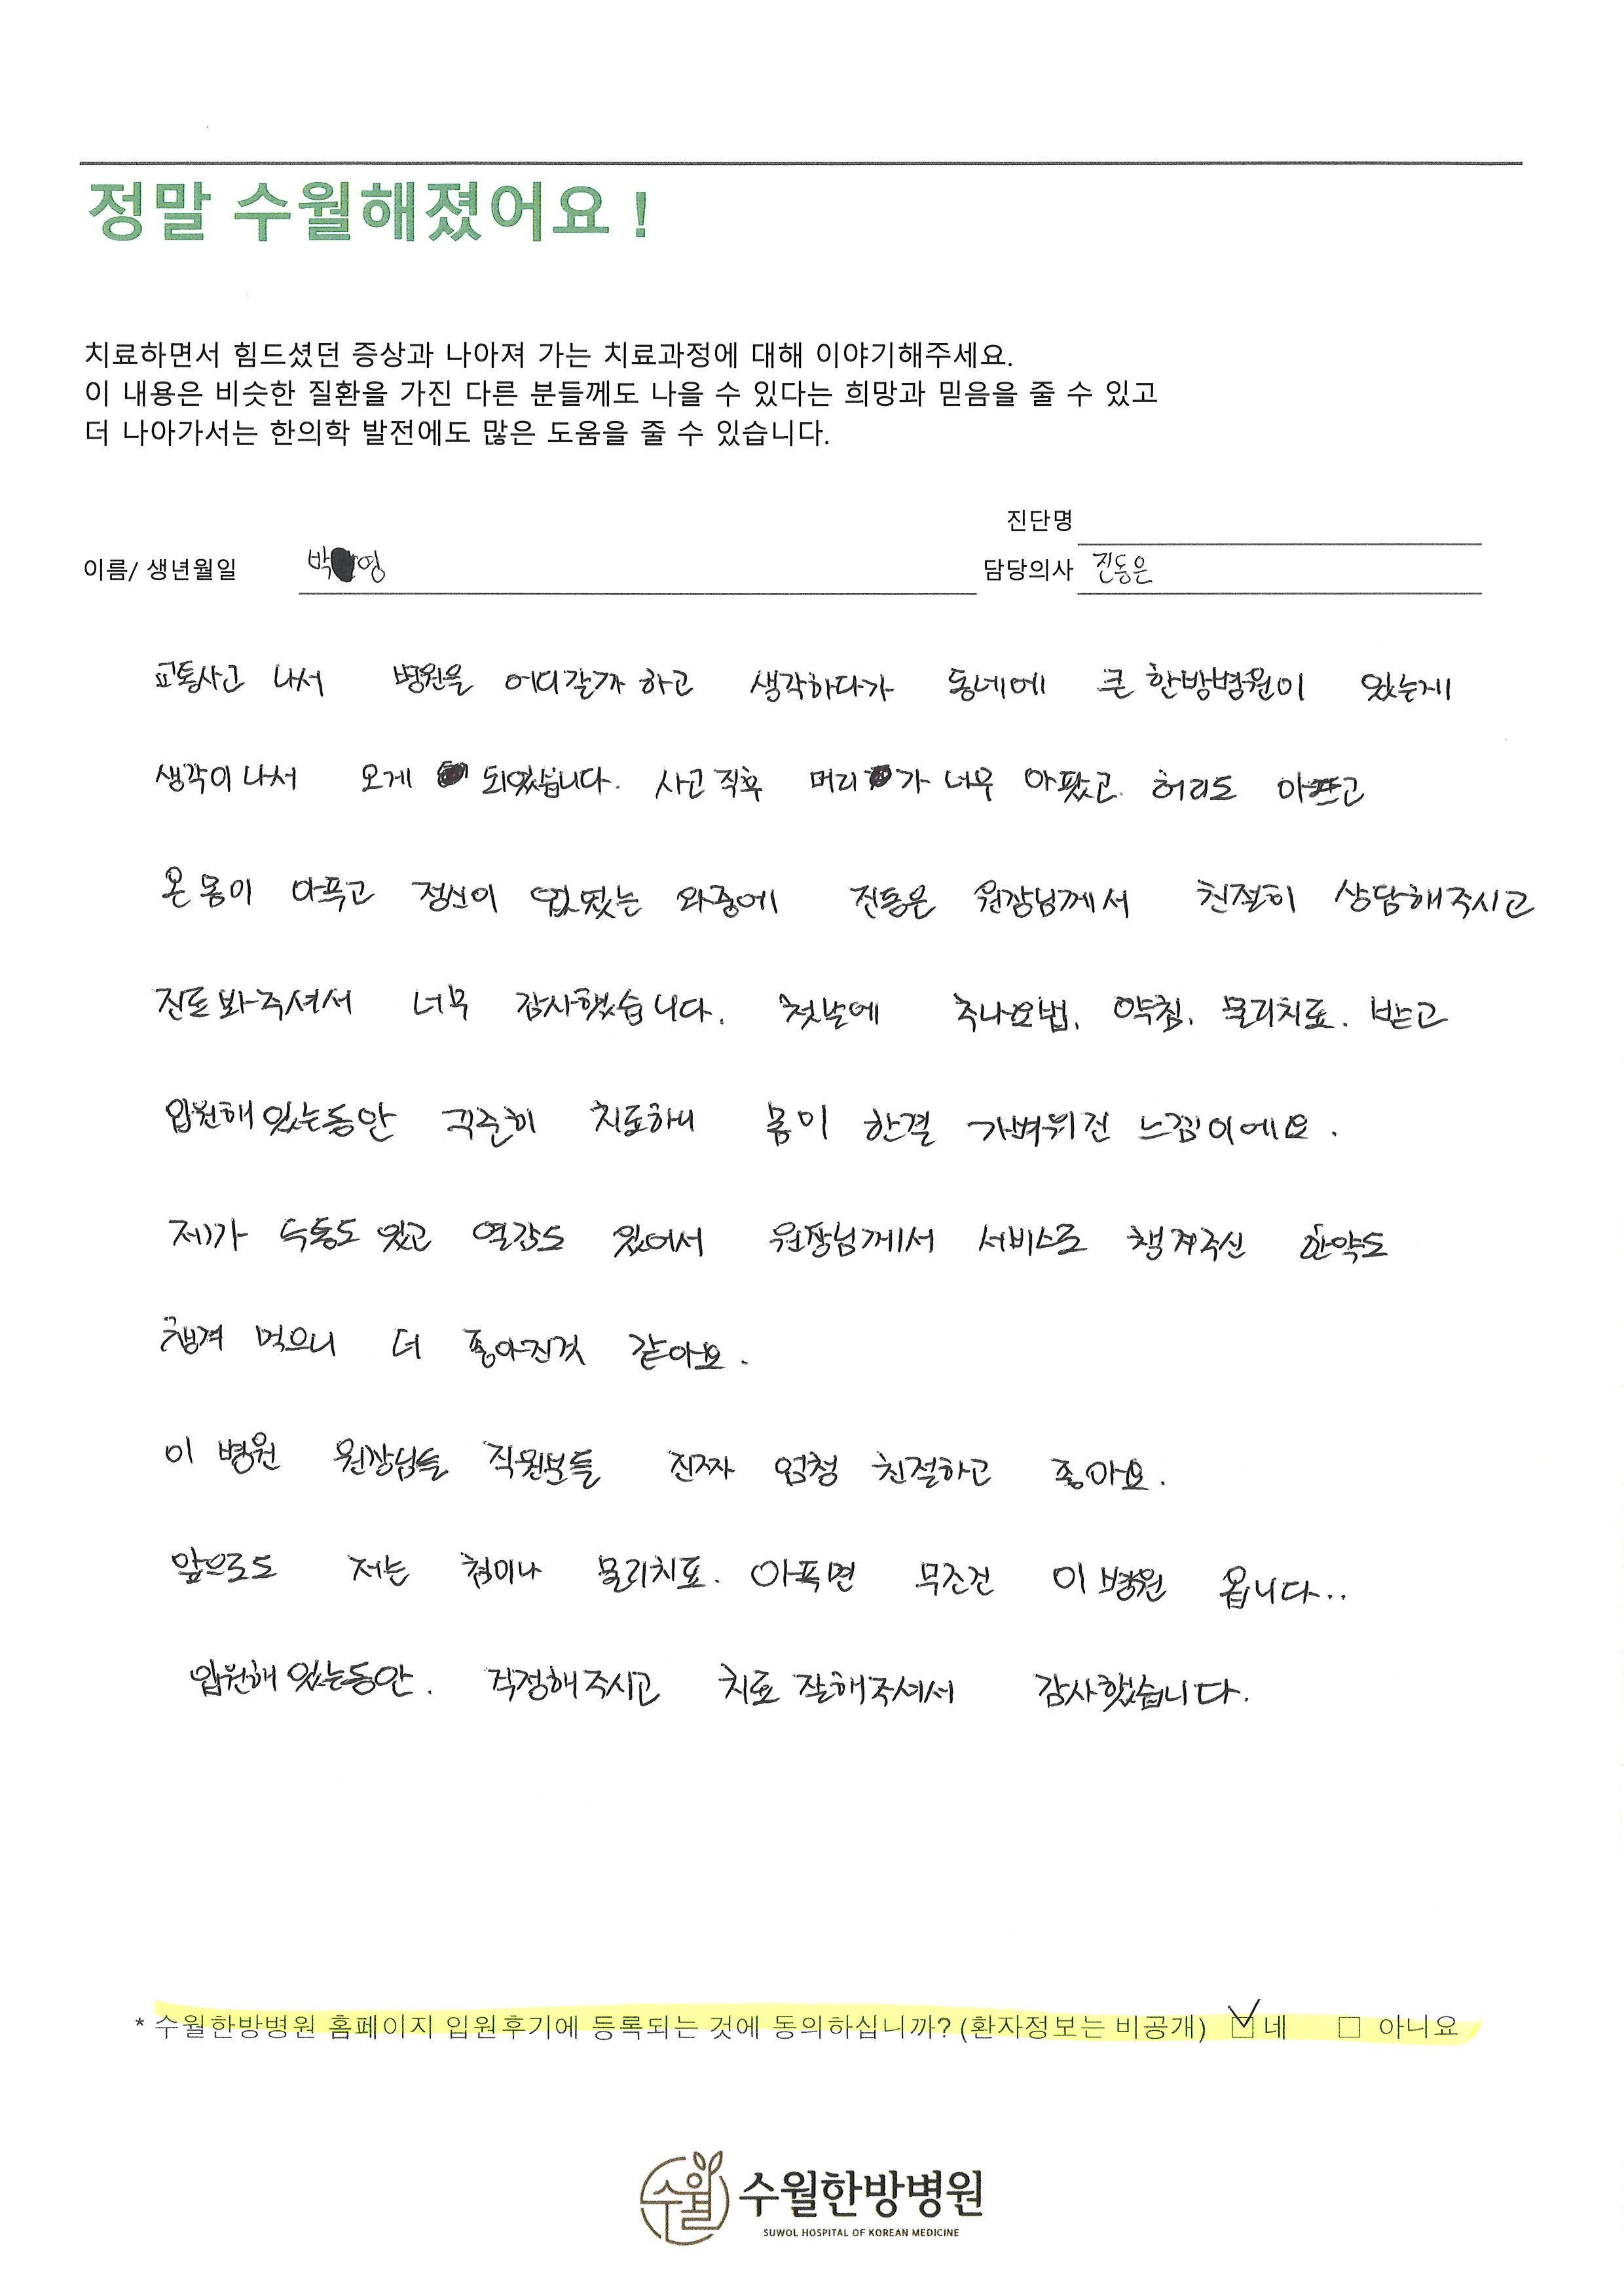 정말 수월해졌어요 !
치료하면서 힘드셨던 증상과 나아져 가는 치료과정에 대해 이야기해주세요.
이 내용은 비슷한 질환을 가진 다른 분들께도 나을 수 있다는 희망과 믿음을 줄 수 있고
더 나아가서는 한의학 발전에도 많은 도움을 줄 수 있습니다.
진단명
이름/ 생년월일 박 영 담당의사 진동은
교통사고 나서 병원을 어디갈까 하고 생각하다가 동네에 큰 한방병원이 있는게
생각이 나서 오게 되었습니다. 사고 직후 머리가 너무 아팠고. 허리도 아프고
온 몸이 아푹고 정신이 없었는 와중에 진동은 원장님께서 친절히 상담해주시고
진료 봐주셔서 너무 감사했습니다. 첫날에 추나요법, 약침, 물리치료. 받고
입원해 있는동안 꾸준히 치료하니 몸이 한결 가벼워진 느낌이에요.
제가 두통도 있고 열감도 있어서 원장님께서 서비스로 챙겨주신 한약도
챙겨 먹으니 더 좋아진것 같아요.
이 병원 원장님들 직원분들 진짜 엄청 친절하고 좋아요.
앞으로도 저는 침이나 물리치료. 아푹면 무조건 이 병원 옵니다..
입원해 있는동안. 걱정해주시고 치료 잘해주셔서 감사했습니다.
* 수월한방병원 홈페이지 입원후기에 등록되는 것에 동의하십니까? (환자정보는 비공개) ☑ 네 □ 아니요
수월 수월한방병원
SUWOL HOSPITAL OF KOREAN MEDICINE